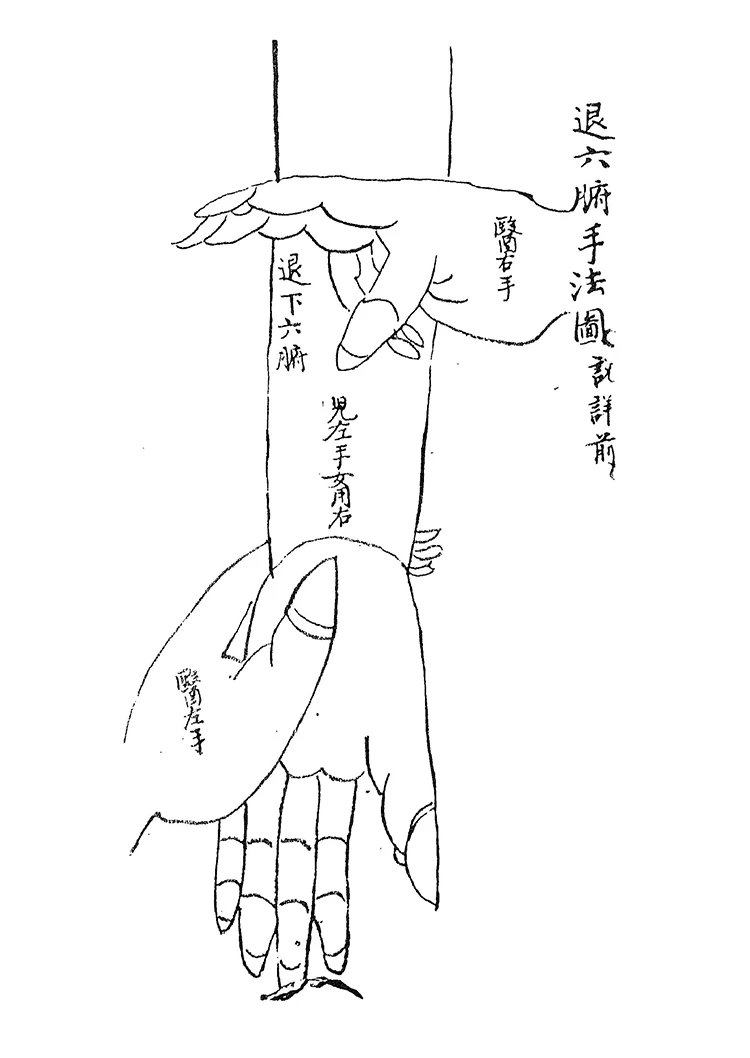 退六腑手法圖 訣詳前
醫右手
退下六腑
児左手女用右
醫左手